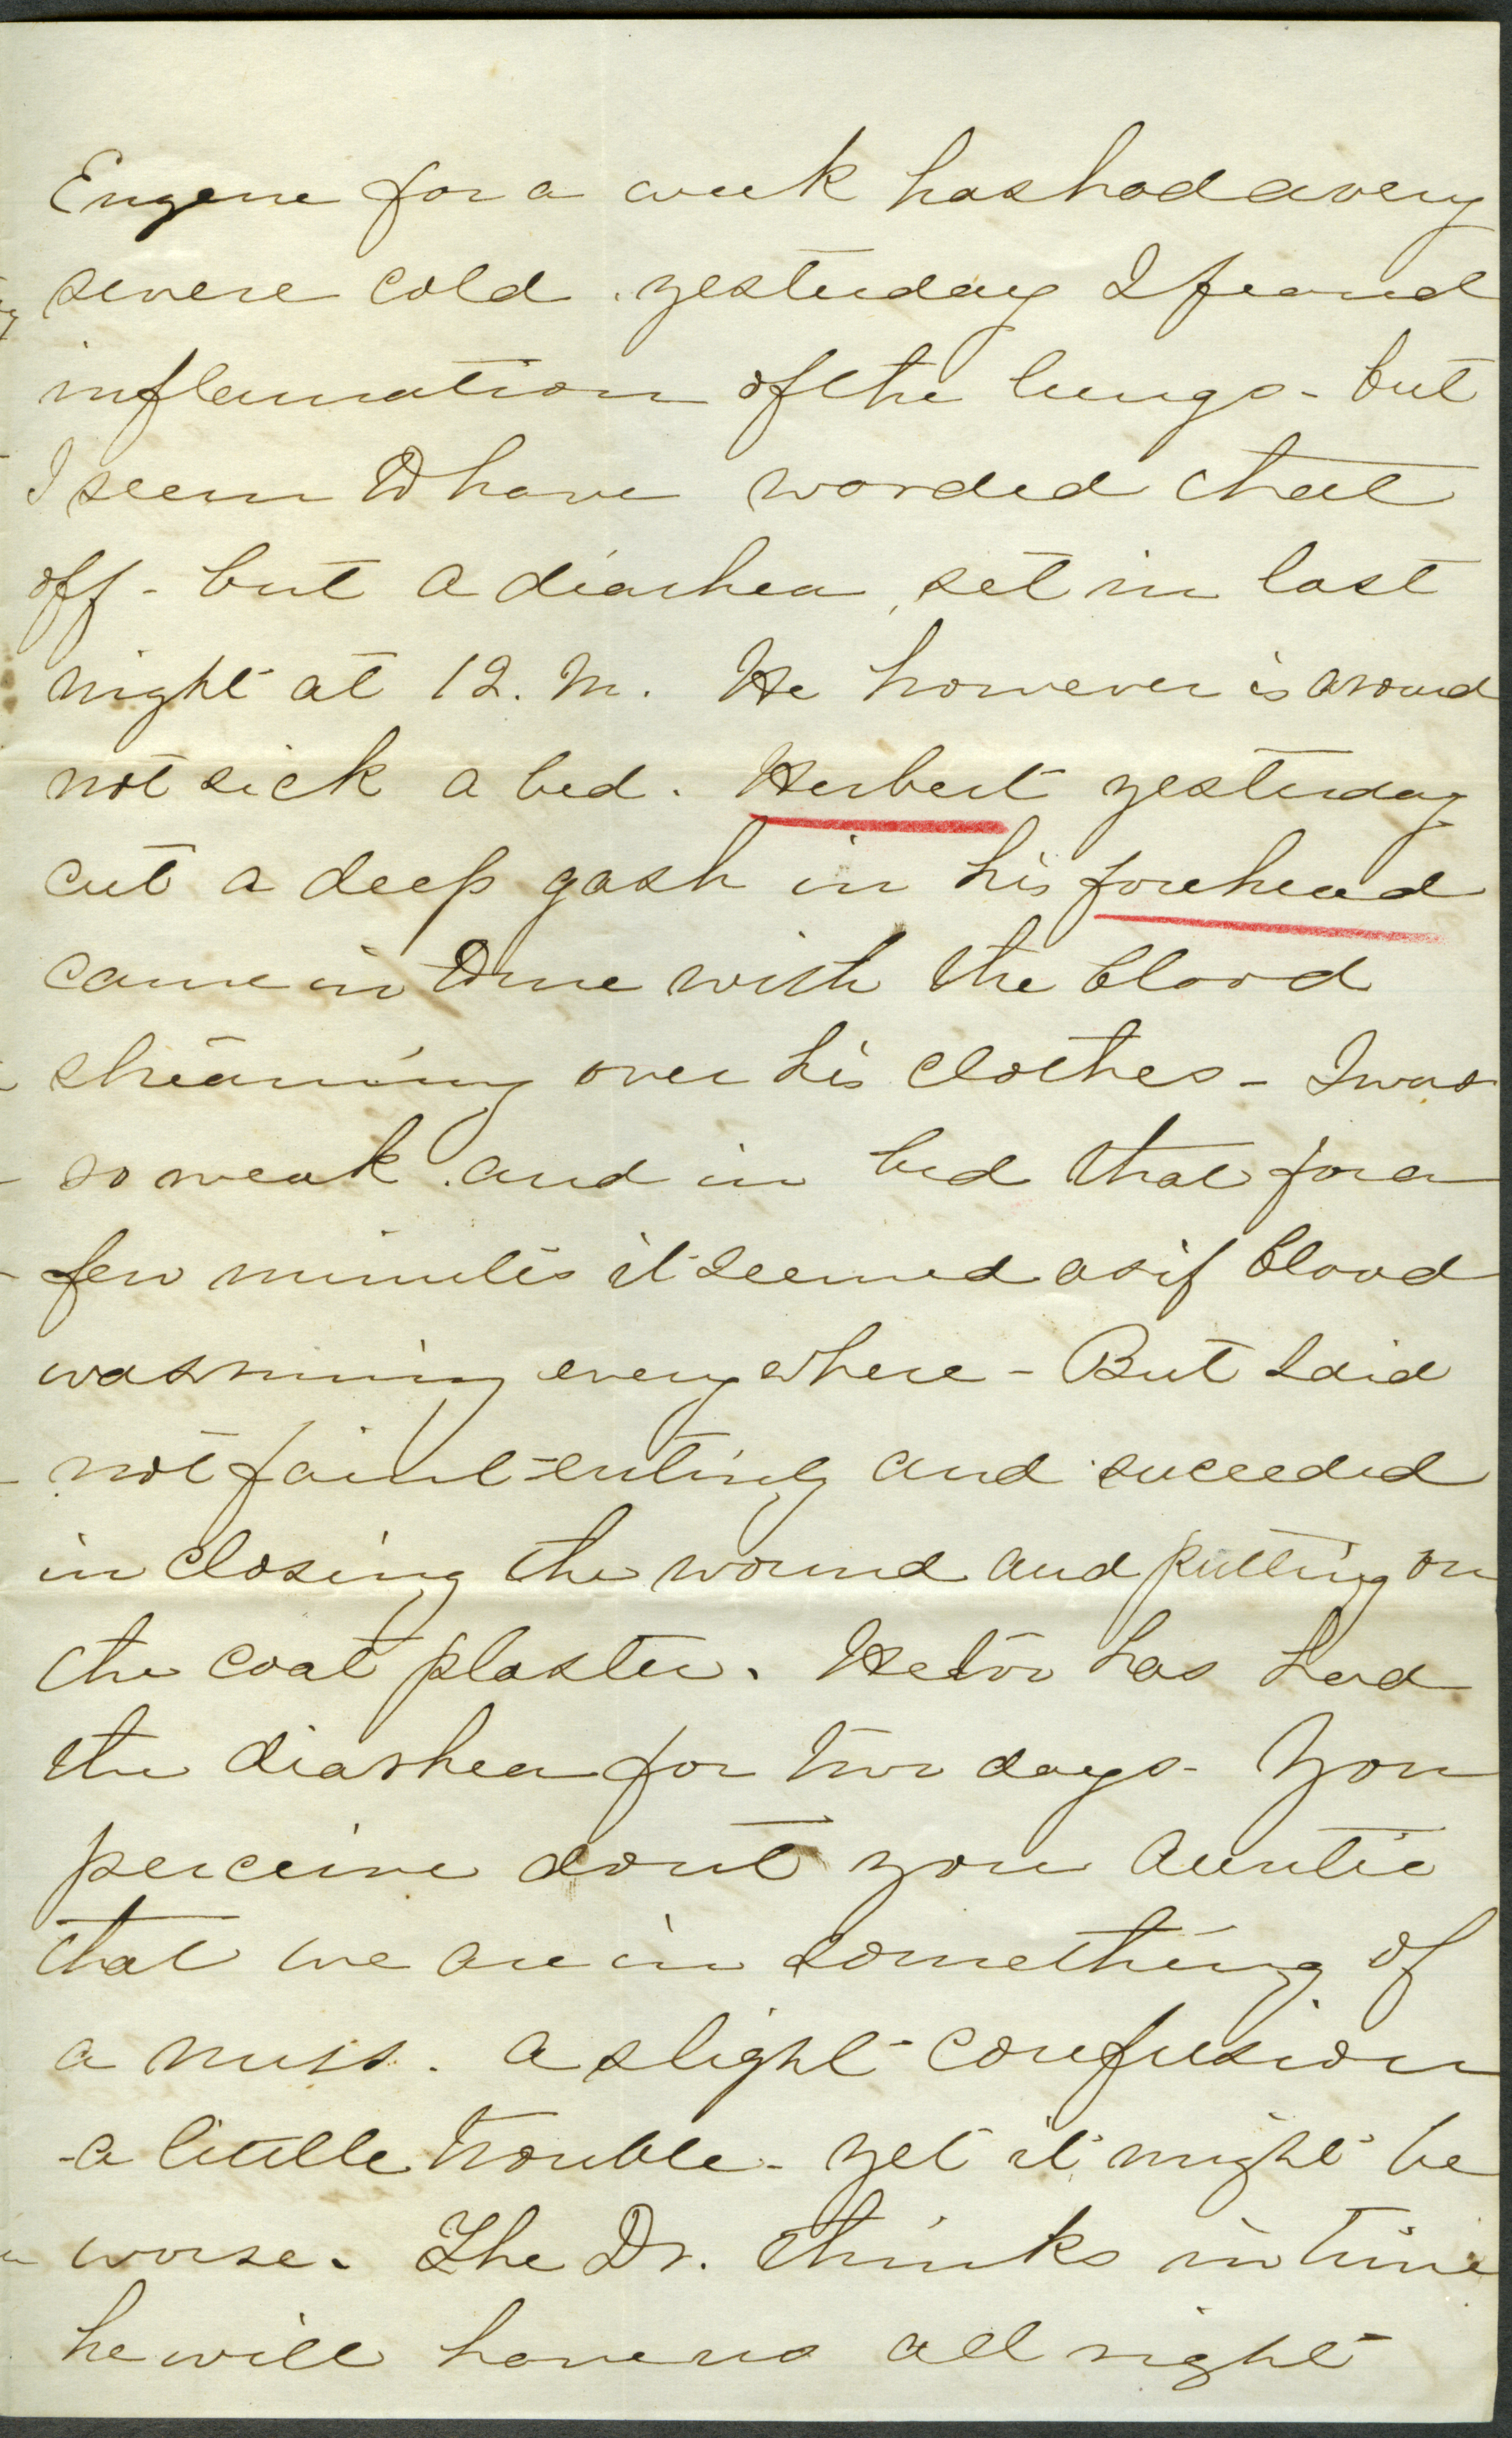 Eugene for a week has had a very
severe cold. yesterday I feared
inflamation of the lungs - but
I seem to have warded that
off - but a diarhea set in last
night at 12. M. He however is around
not sick a bed. Herbert yesterday
cut a deep gash in his forehead
came in to me with the blood
streaming over his clothes - I was
so weak and in bed that for a
few minutes it seemed as if blood
was running everywhere - But I did
not faint entirely and succeeded
in closing the wound and putting on
the coat plaster. He too has had
the diarhea for two days - You
perceive dont you Auntie
that we are in something of
a muss. a slight confusion
- a little trouble - yet it might be
worse. The Dr. thinks in time
he will have us all right